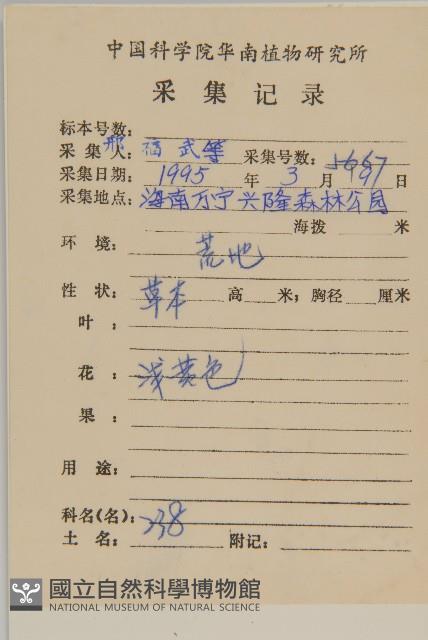 中国科学院华南植物研究所
采集记录
标本号数:
采集人: 邢福武等 采集号数: 5667
采集日期: 1995 年 3 月 日
采集地点: 海南万宁兴隆森林公园
海拨 米
环境: 荒地
性状: 草本 高 米; 胸径 厘米
叶:
花: 浅黄色
果:
用途:
科名(名): 238
土名: 附记:
國立自然科學博物館
NATIONAL MUSEUM OF NATURAL SCIENCE